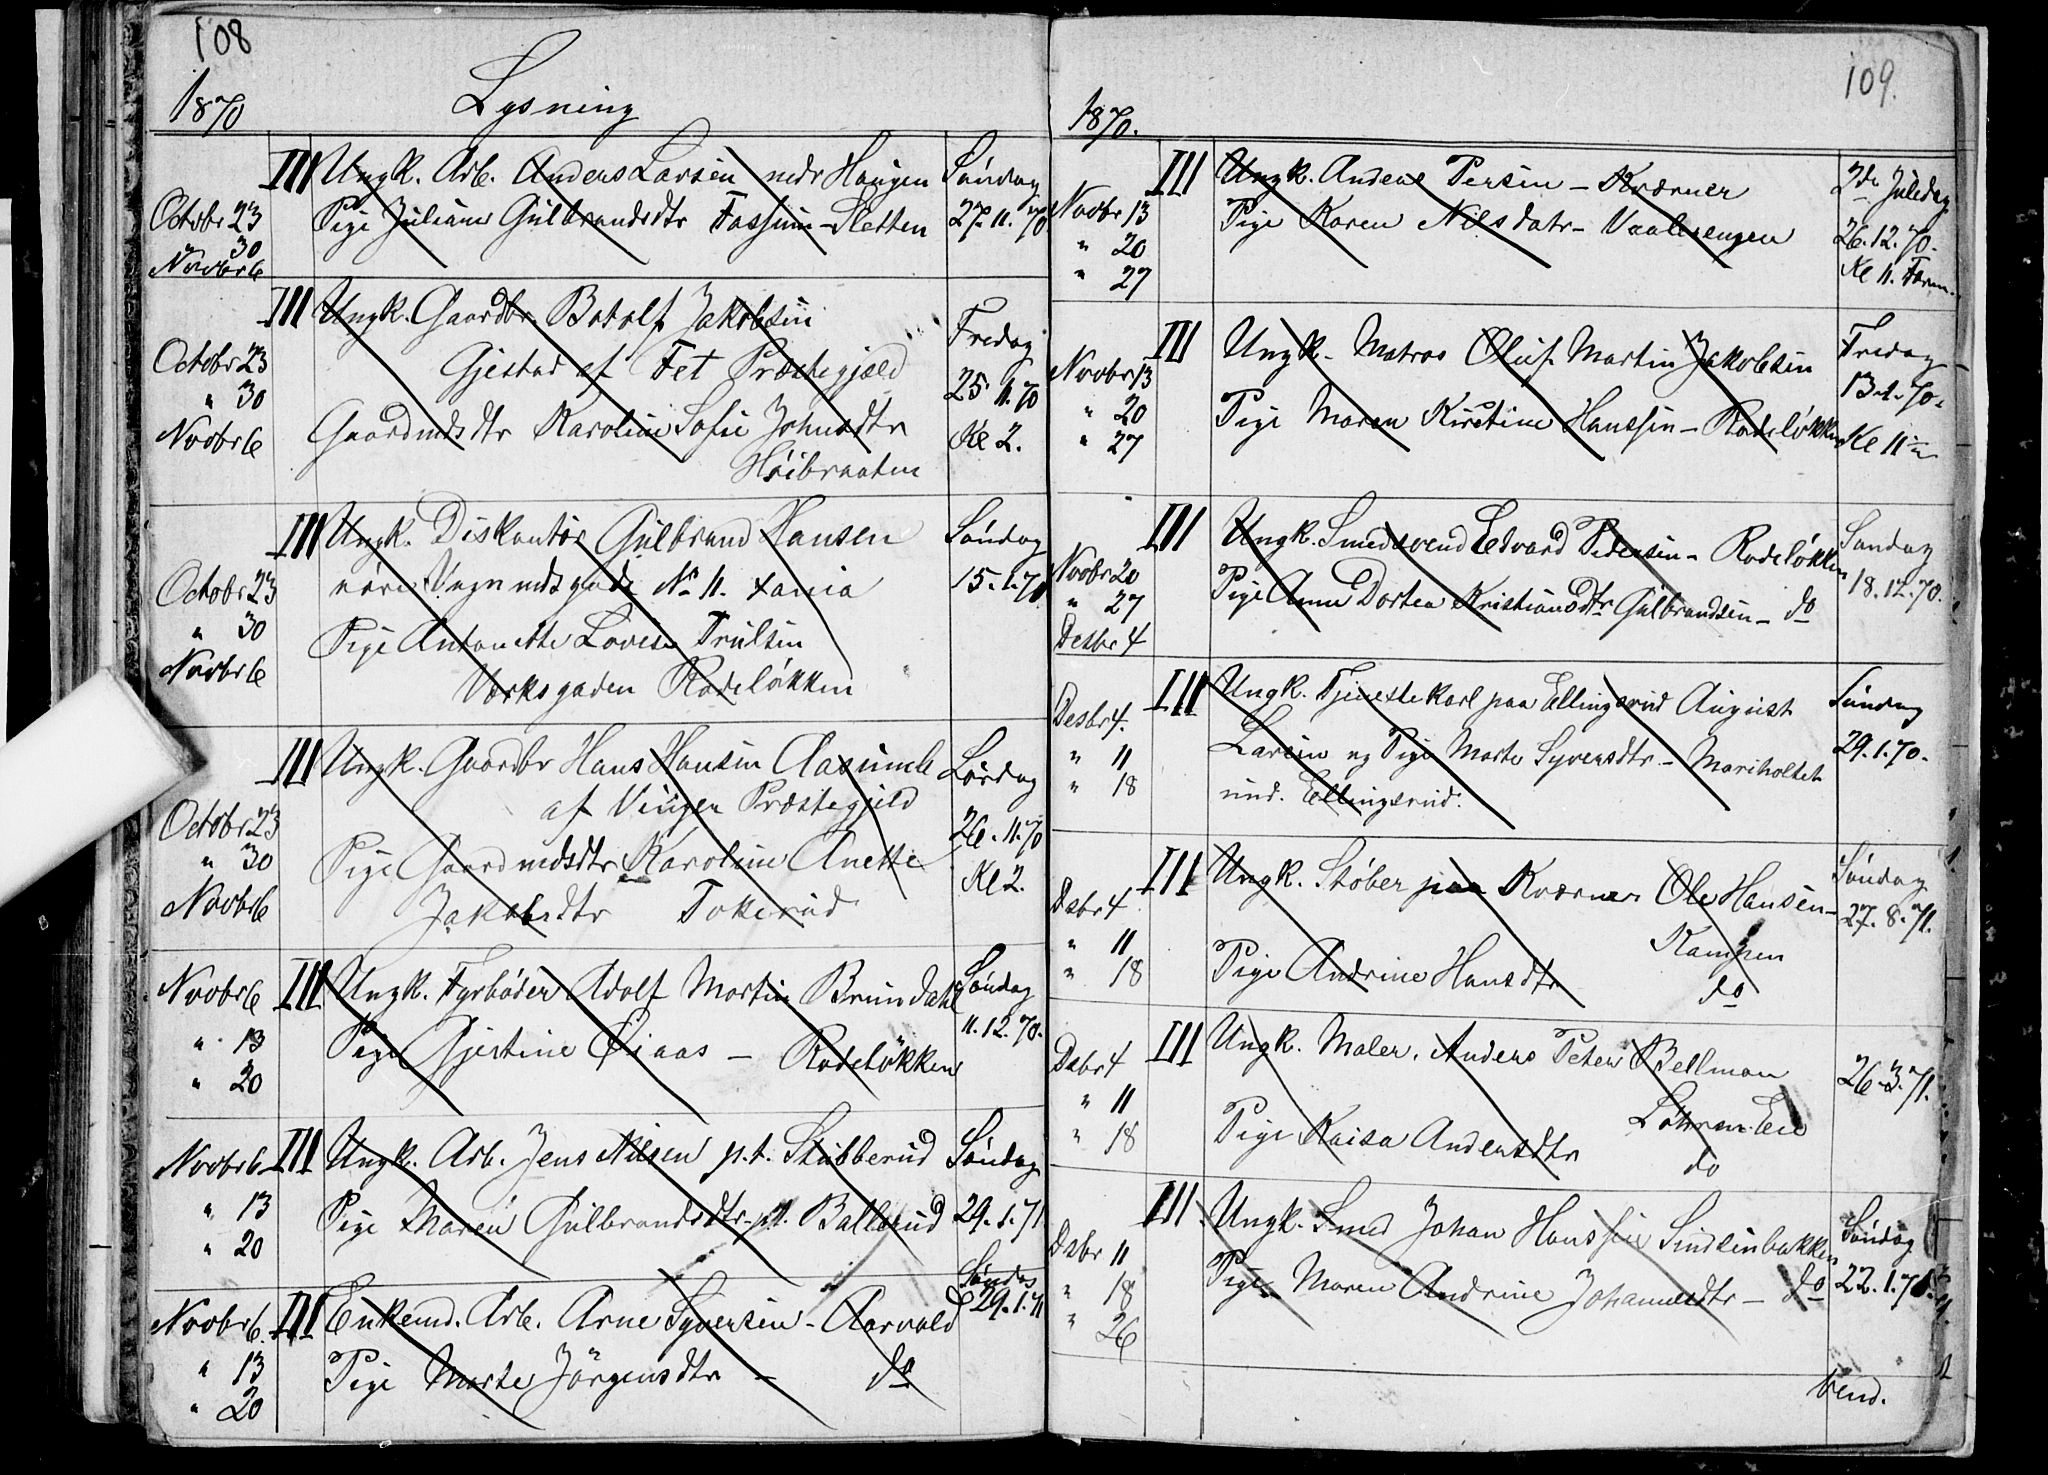 108
1870 Lysning
Octobr 23 III Ungk. Arb. Anders Larsen nedr Haugen Söndag
30 Pige Juliane Gulbrandsdtr Fossum-Sletten 27.11.70
Novbr 6
Octobr 23 III Ungk. Gaardbr Botolf Jakobsen Fredag
" 30 Gjestad af Fet Præstegjæld 25.11.70
Novbr 6 Gaardmdsdtr Karoline Sofie Johnsdtr Kl 2.
Höibraaten
Octobr 23 III Ungk. Gulbrand Hansen Söndag
" 30 No 11. 15.1.71
Novbr 6 Pige Antonette Lovise Trulsen
Værksgaden Rodeløkken
Octobr 23 III Ungk. Gaardbr Hans Hansen Aasumb Lördag
" 30 af Vinger Præstegjeld 26.11.70
Novbr 6 Pige Gaardmdsdtr Karoline Anette Kl 2.
Jakobsdtr Tokerud
Novbr 6 III Ungk. Fyrböder Adolf Martin Brundahl Söndag
" 13 Pige Gjestine Öiaas - Rodelökken 11.12.70.
" 20
Novbr 6 III Ungk. Arb. Jens Nilsen p.t. Stubberud Söndag
" 13 Pige Maren Gulbrandsdtr p.t. Ballerud 29.1.71
" 20
Novbr 6. III Enkemd. Arb. Arne Syversen - Aarvold Söndag 29.1.71
" 13 Pige Marte Jörgensdtr - do
" 20
109.
1870.
Novbr 13 III Ungk. Anders Persen - Kværner 2de Juledag
" 20 Pige Karen Nilsdatr - Vaalerengen 26.12.70.
" 27 Kl 11. Form.
Novbr 13 III Ungk. Matros Oluf Martin Jakobsen Fredag
" 20 Pige Maren Kirstine Hanssen - Rodeløkken 13.1.70.
" 27 Kl 11
Novbr 20 III Ungk. Smedsvend Edvard Pedersen - Rodeløkken Søndag
" 27 Pige Anne Dortea Kristiansdtr Gulbrandsen - do 18.12.70.
Desbr 4
Desbr 4. III Ungk. Tjenestekarl paa Ellingsrud August Söndag
" 11 Larsen og Pige Marte Syversdtr - Mariholtet 29.1.70.
" 18 und. Ellingsrud.
Dsbr 4 III Ungk. Støber paa Kværner Ole Hansen - Söndag
" 11 Kampen 27.8.71.
" 18 Pige Andrine Hansdtr do
Dsbr 4 III Ungk. Maler. Anders Peter Bellman 26.3.71.
" 11 Eie
" 18 Pige Kaisa Andersdtr do
Dsbr 11 III Ungk. Smed Johan Hanssen Sinsenbakken Söndag
" 18 Pige Maren Andrine Johannesdtr - do 22.1.71.
" 26
vend.